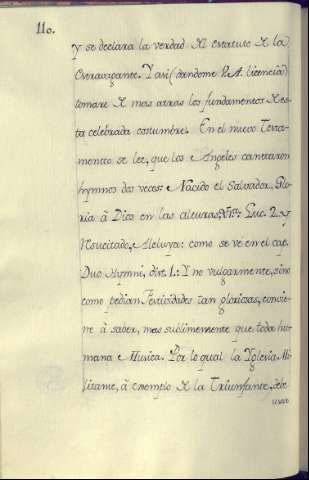 110.
y se declara la verdad del estatuto de la
Extravagante. Y asi (dandome P.A. licencia)
tomare de mas atras los fundamentos de es-
ta celebrada costumbre. En el nuevo Testa-
mentto se lee, que los Angeles cantaron
hymnos dos veces: Nacido el Salvador, Glo-
ria à Dios en las alturas, Luc. 2. y
Resucitado, Aleluya: como se vé en el cap.
Duo Hymni, dist. 1.: Y no vulgarmente, sino
como pedian Festividades tan gloriosas, convie-
ne à saber, mas sublimemente que toda hu-
mana Musica. Por lo qual la Yglesia Mi-
litante, à exemplo de la Triunfante, debe
usar